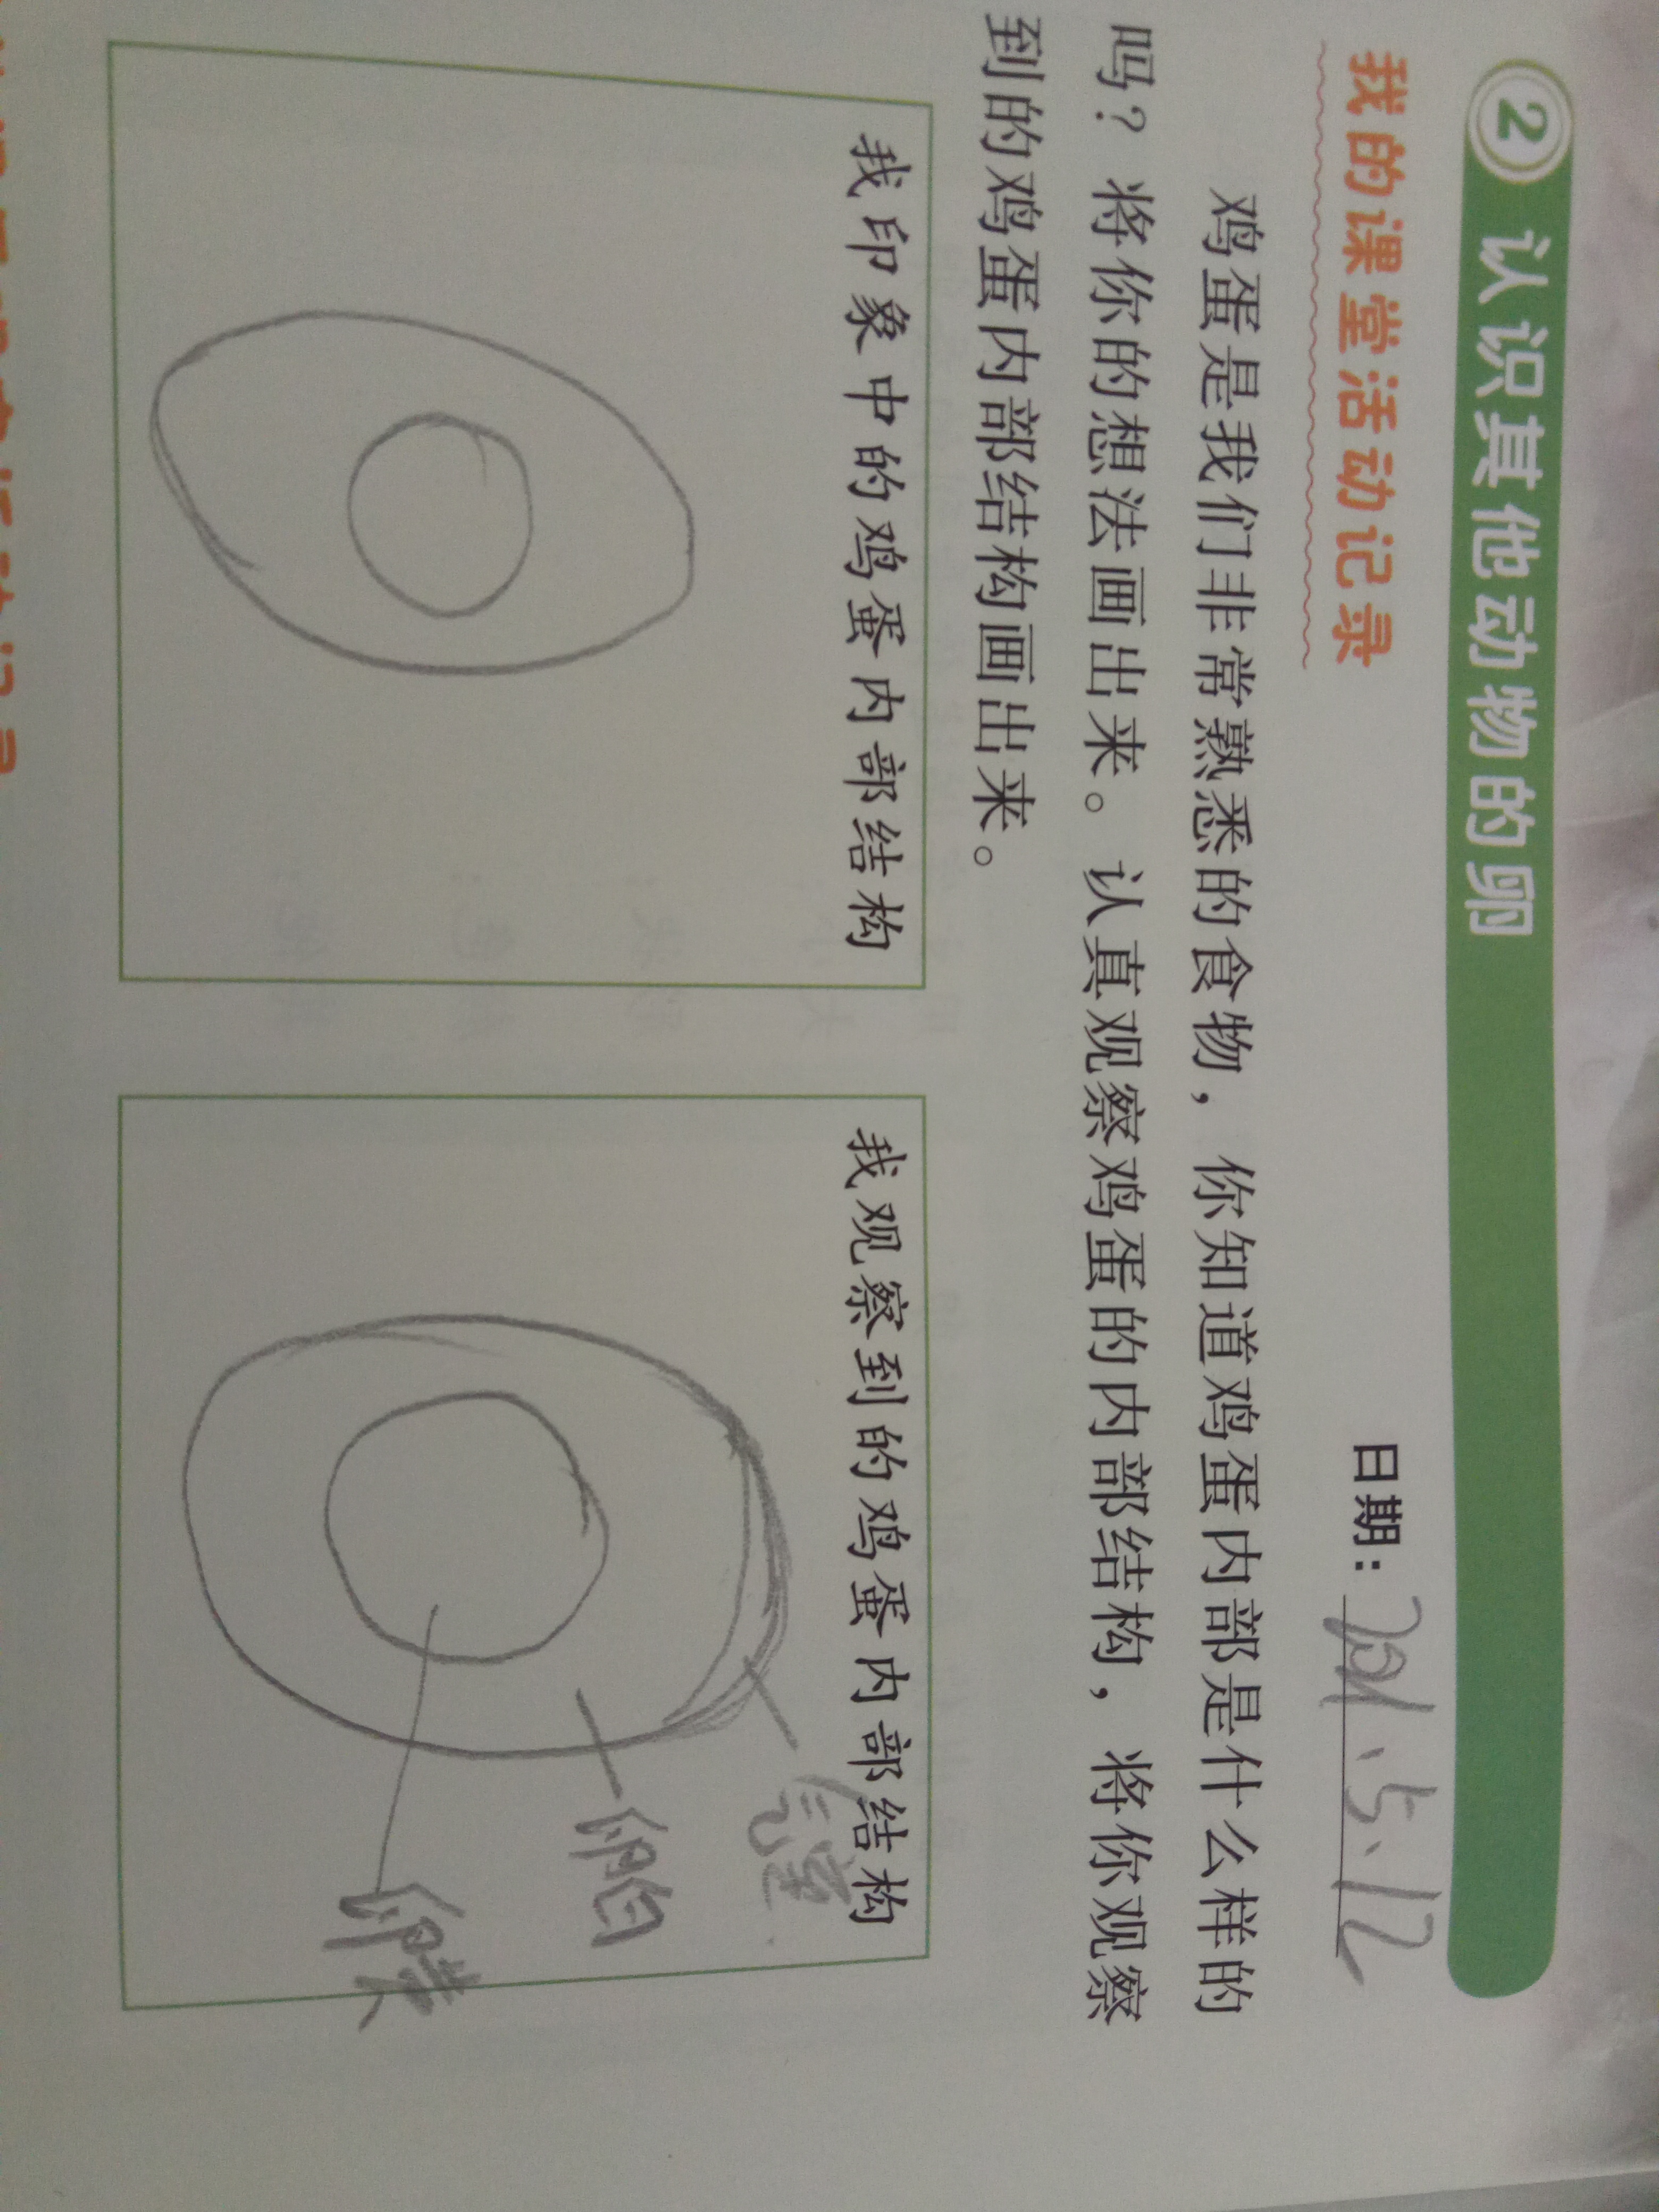 2 认识其他动物的卵
我的课堂活动记录 日期：2021.5.12
鸡蛋是我们非常熟悉的食物，你知道鸡蛋内部是什么样的
吗？将你的想法画出来。认真观察鸡蛋的内部结构，将你观察
到的鸡蛋内部结构画出来。
我印象中的鸡蛋内部结构
我观察到的鸡蛋内部结构
气室
卵白
卵黄